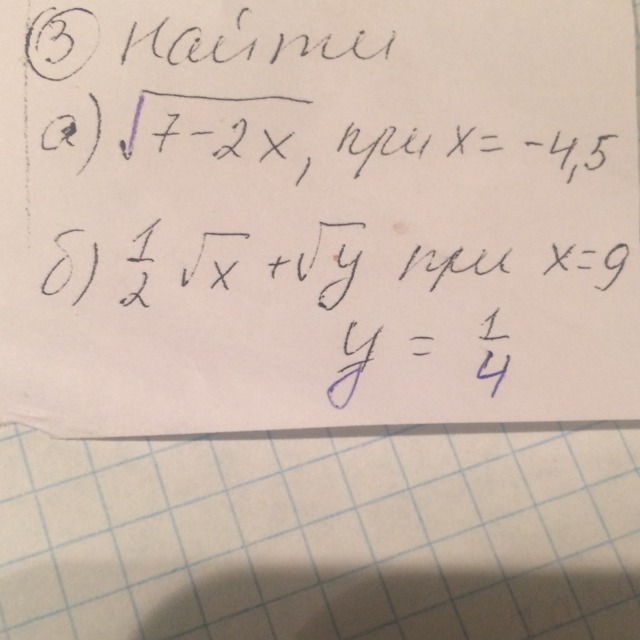 ③ Найти
а) √7-2x, при x= -4,5
б) 1/2 √x +√y при x=9
y = 1/4